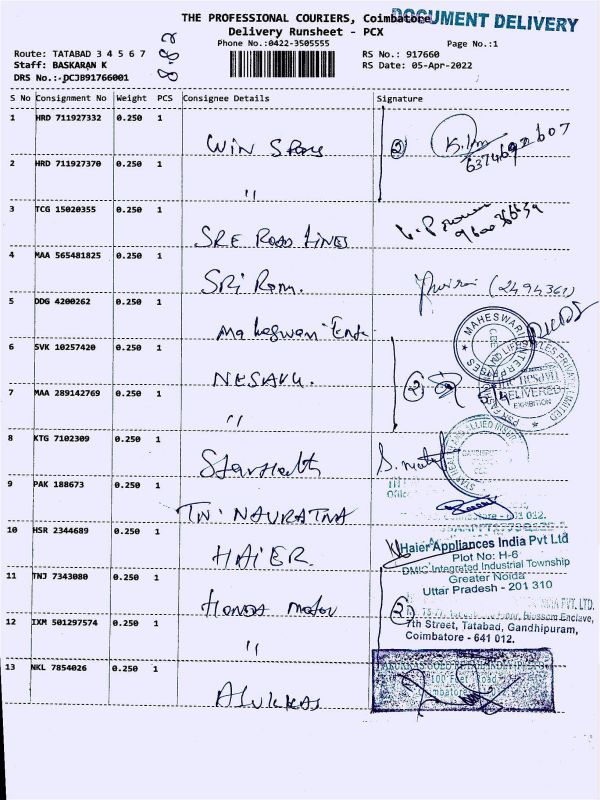 THE PROFESSIONAL COURIERS, Coimbatore
DOCUMENT DELIVERY
Delivery Runsheet - PCX
Phone No.:0422-3505555
Page No.:1
Route: TATABAD 3 4 5 6 7
RS No.: 917660
Staff: BASKARAN K
RS Date: 05-Apr-2022
DRS No.:-DCJB91766001
S No Consignment No Weight PCS Consignee Details Signature
1 HRD 711927332 0.250 1
Win
2
2 HRD 711927370 0.250 1
"
3 TCG 15020355 0.250 1
SRE ROAD LINES
4 MAA 565481825 0.250 1
Sri Ram.
(2494361)
5 DDG 4200262 0.250 1
Maheswari Ente
MAHESWARI ENTERPRISES
6 SVK 10257420 0.250 1
NESAVU.
2
DELIVERED
EXHIBITION
7 MAA 289142769 0.250 1
"
8 KTG 7102309 0.250 1
Starhealth
STAR HEALTH AND ALLIED INSUR
9 PAK 188673 0.250 1
TN. NAVRATNA
10 HSR 2344689 0.250 1
HAIER
Haier Appliances India Pvt Ltd
Plot No: H-6
DMIC Integrated Industrial Township
Greater Noida
Uttar Pradesh - 201 310
11 TNJ 7343080 0.250 1
Honda Motor
2
7th Street, Tatabad, Gandhipuram,
Coimbatore - 641 012.
12 IXM 501297574 0.250 1
"
13 NKL 7854026 0.250 1
Alukkas
100 Feet Road